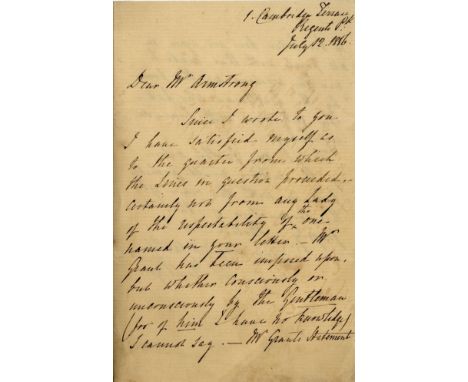 1. Cambridge Terrace
Regents Pk
July 12. 1886.
Dear Mr Armstrong
Since I wrote to you
I have satisfied myself as
to the quarter from which
the lines in question proceeded.
Certainly not from any Lady
of the respectability of the one
named in your letter — Mr
Grant has been imposed upon,
but whether consciously or
unconsciously by the Gentleman
(for of him I have no knowledge)
I cannot say. — Mr Grants Statement